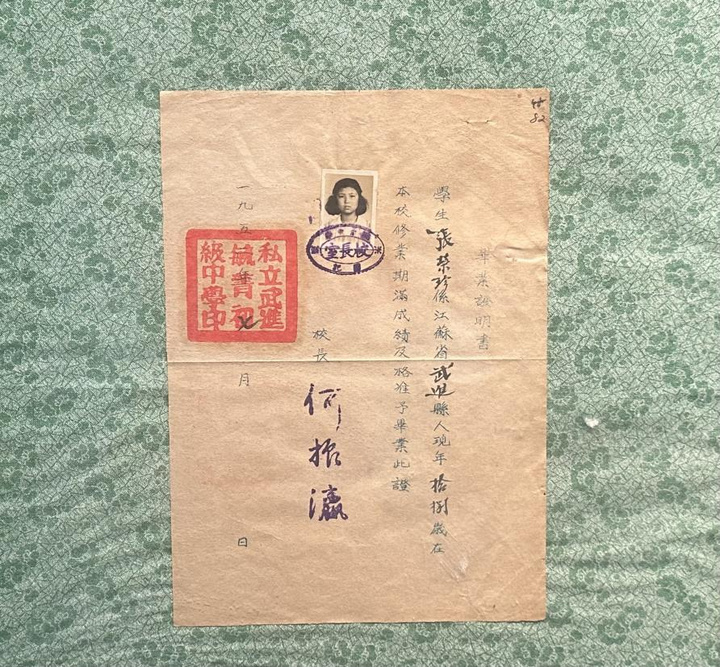 畢業證明書
學生張榮珍係江蘇省武進縣人現年拾捌歲在
本校修業期滿成績及格准予畢業此證
校長
何振瀛
一九五 年 七月 日
私立武進
毓菁初
級中學印
校長室
82